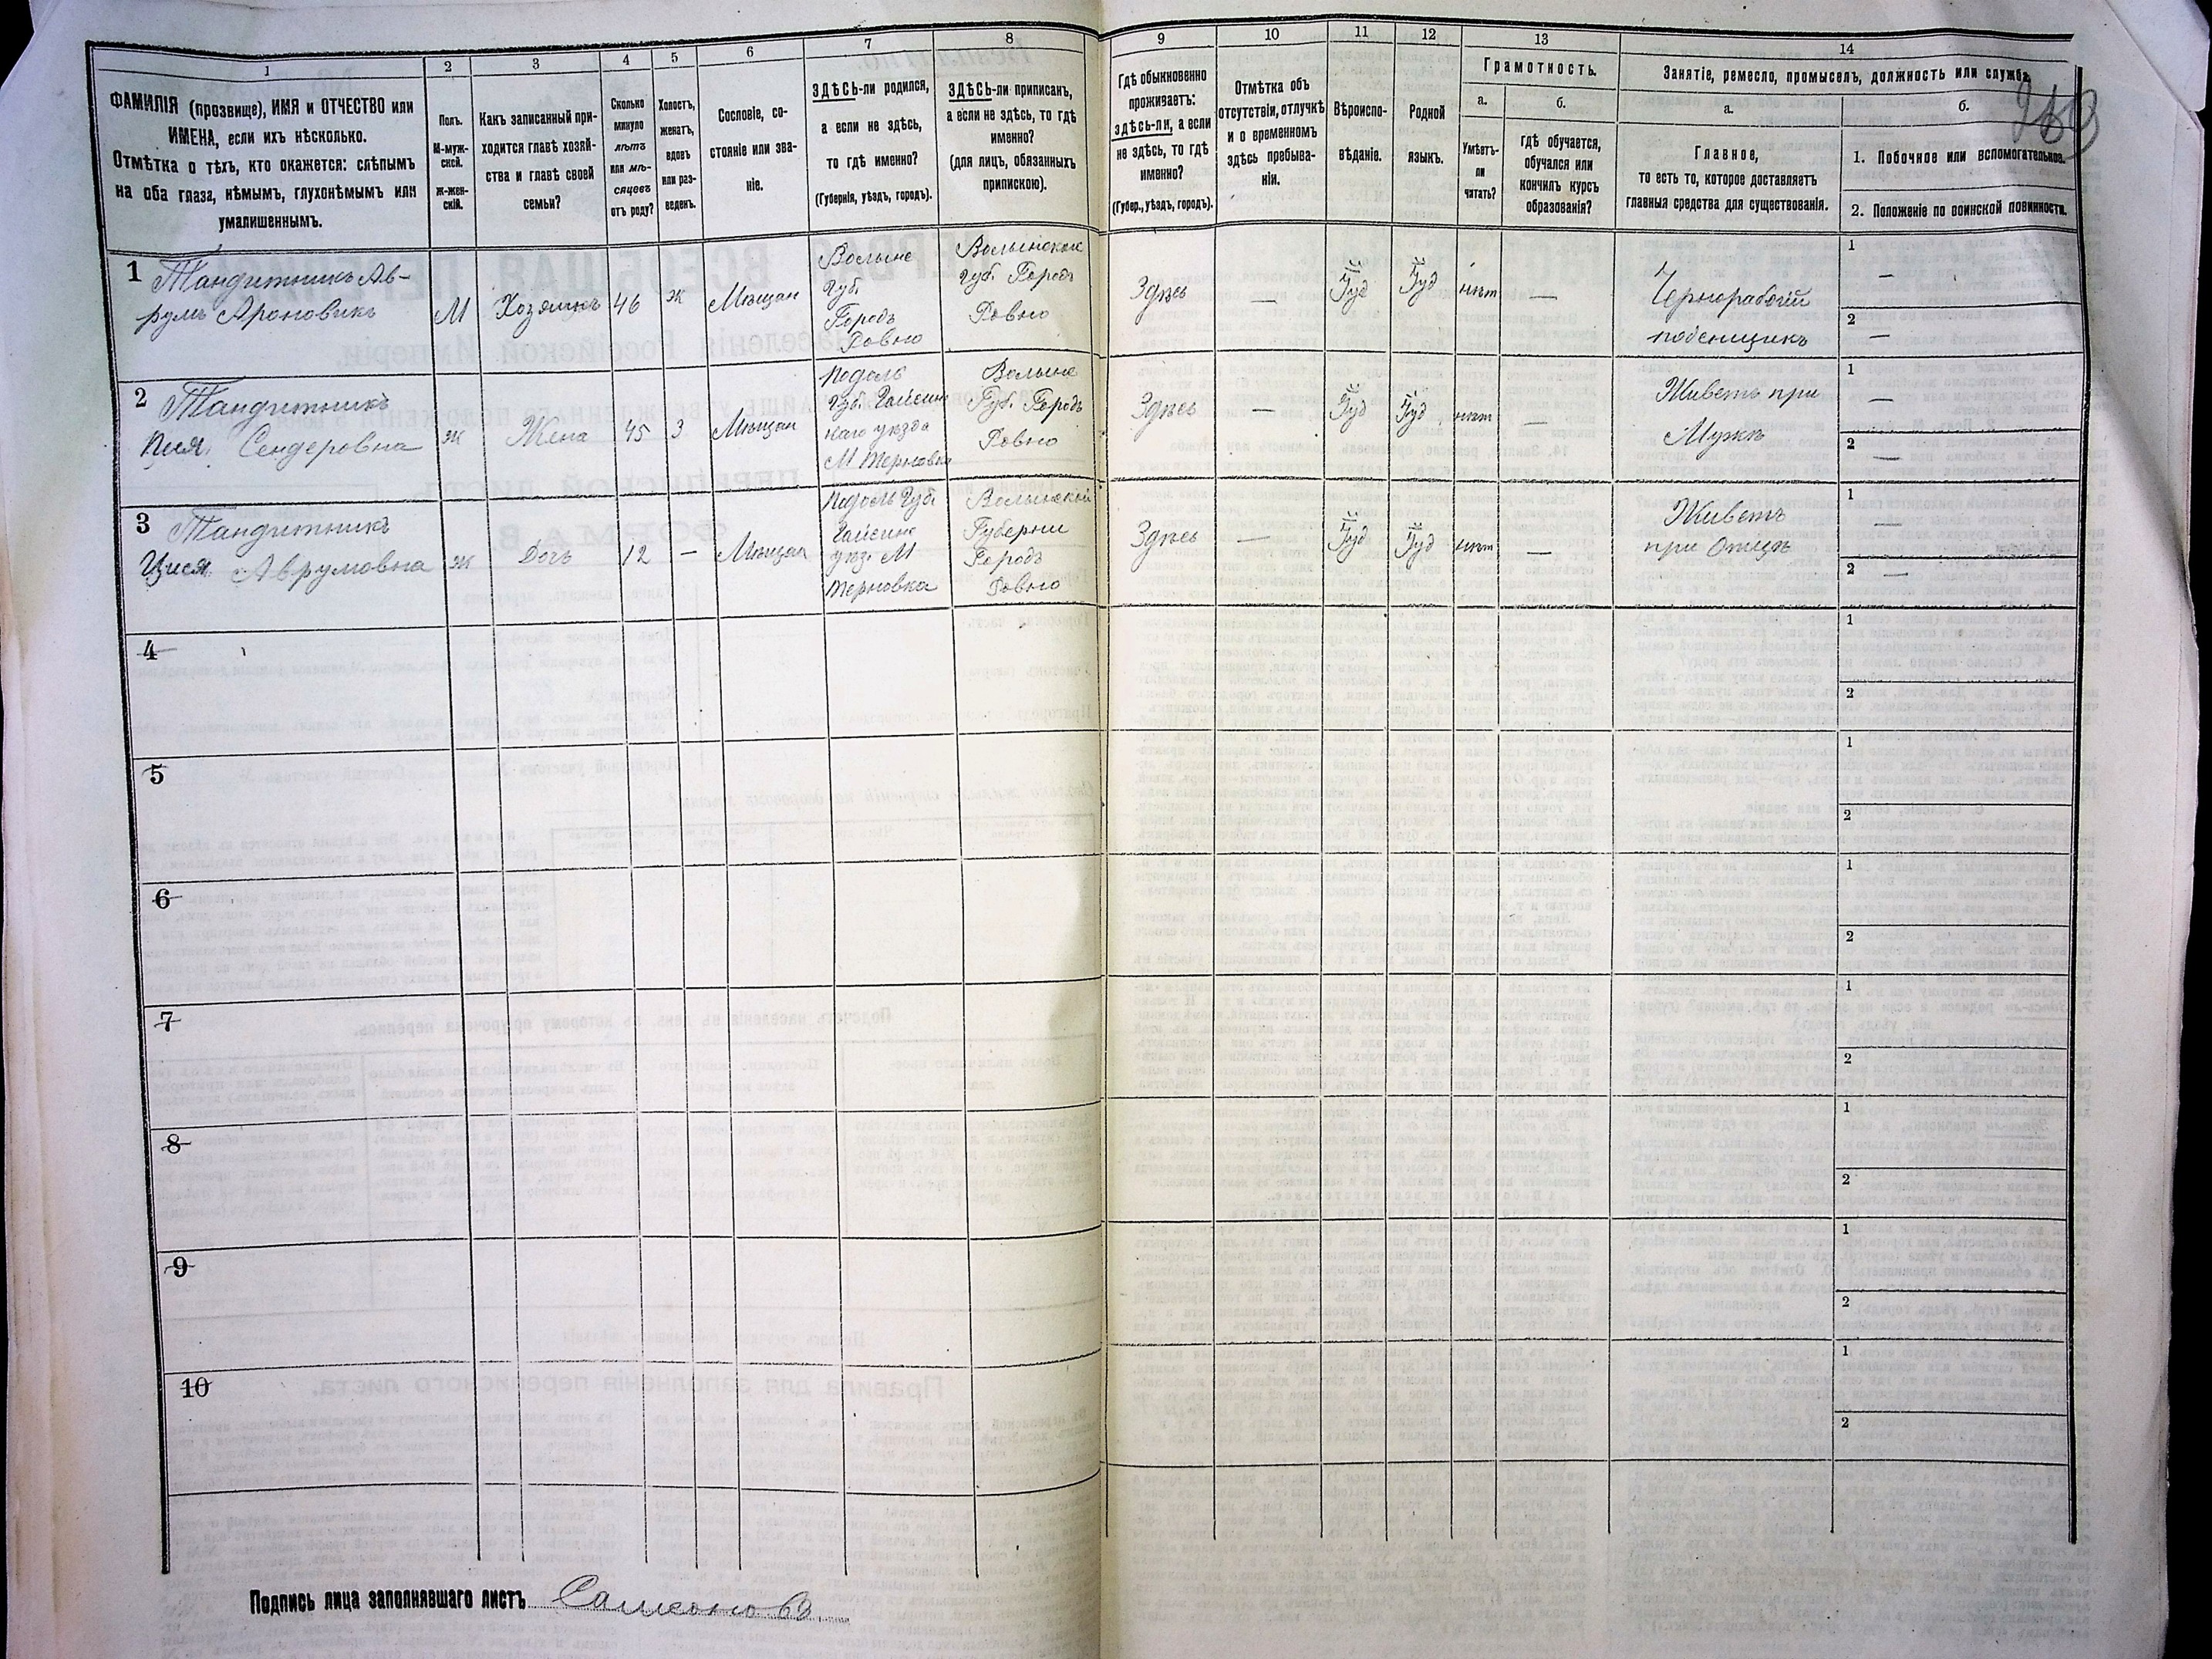 1 2 3 4 5 6 7 8 9 10 11 12 13 14
ФАМИЛІЯ (прозвище), ИМЯ и ОТЧЕСТВО или
ИМЕНА, если ихъ нѣсколько.
Отмѣтка о тѣхъ, кто окажется: слѣпымъ
на оба глаза, нѣмымъ, глухонѣмымъ или
умалишеннымъ.
Полъ.
М-муж-
ской.
ж-жен-
скій.
Какъ записанный при-
ходится главѣ хозяй-
ства и главѣ своей
семьи?
Сколько
минуло
лѣтъ
или мѣ-
сяцевъ
отъ роду?
Холостъ,
женатъ,
вдовъ
или раз-
веденъ.
Сословіе, со-
стояніе или зва-
ніе.
ЗДѢСЬ-ли родился,
а если не здѣсь,
то гдѣ именно?
(Губернія, уѣздъ, городъ).
ЗДѢСЬ-ли приписанъ,
а если не здѣсь, то гдѣ
именно?
(для лицъ, обязанныхъ
припискою).
Гдѣ обыкновенно
проживаетъ:
здѣсь-ли, а если
не здѣсь, то гдѣ
именно?
(Губер., уѣздъ, городъ).
Отмѣтка объ
отсутствіи, отлучкѣ
и о временномъ
здѣсь пребыва-
ніи.
Вѣроиспо-
вѣданіе.
Родной
языкъ.
Грамотность.
а.
Умѣетъ-
ли
читать?
б.
гдѣ обучается,
обучался или
кончилъ курсъ
образованія?
Занятіе, ремесло, промыселъ, должность или служба.
а.
Главное,
то есть то, которое доставляетъ
главныя средства для существованія.
б.
1. Побочное или вспомогательное.
2. Положеніе по воинской повинности.
1 Тандитникъ Ав-
румъ Ароновикъ
М
Хозяинъ
46
ж
Мѣщан
Волынс
Губ.
Городъ
Ровно
Волынской
губ. Городъ
Ровно
Здѣсь
—
Іуд
Іуд
нѣт
—
Чернорабочій
поденщикъ
1 —
2 —
2 Тандитникъ
Сендеровна
ж
Жена
45
З
Мѣщан
Подоль
Губ. Гайсин
каго уѣзда
М Терновка
Волынс
Губ. Городъ
Ровно
Здѣсь
—
Іуд
Іуд
нѣт
—
Живетъ при
Мужѣ
1 —
2 —
3 Тандитникъ
Аврумовна
ж
Дочь
12
—
Мѣщан
Подоль Губ
Гайсинс
уѣз. М
Терновка
Волынской
Губерни
Городъ
Ровно
Здѣсь
—
Іуд
Іуд
нѣт
—
Живетъ
при Отцѣ
1 —
2 —
4
1
2
5
1
2
6
1
2
7
1
2
8
1
2
9
1
2
10
1
2
Подпись лица заполнявшаго листъ